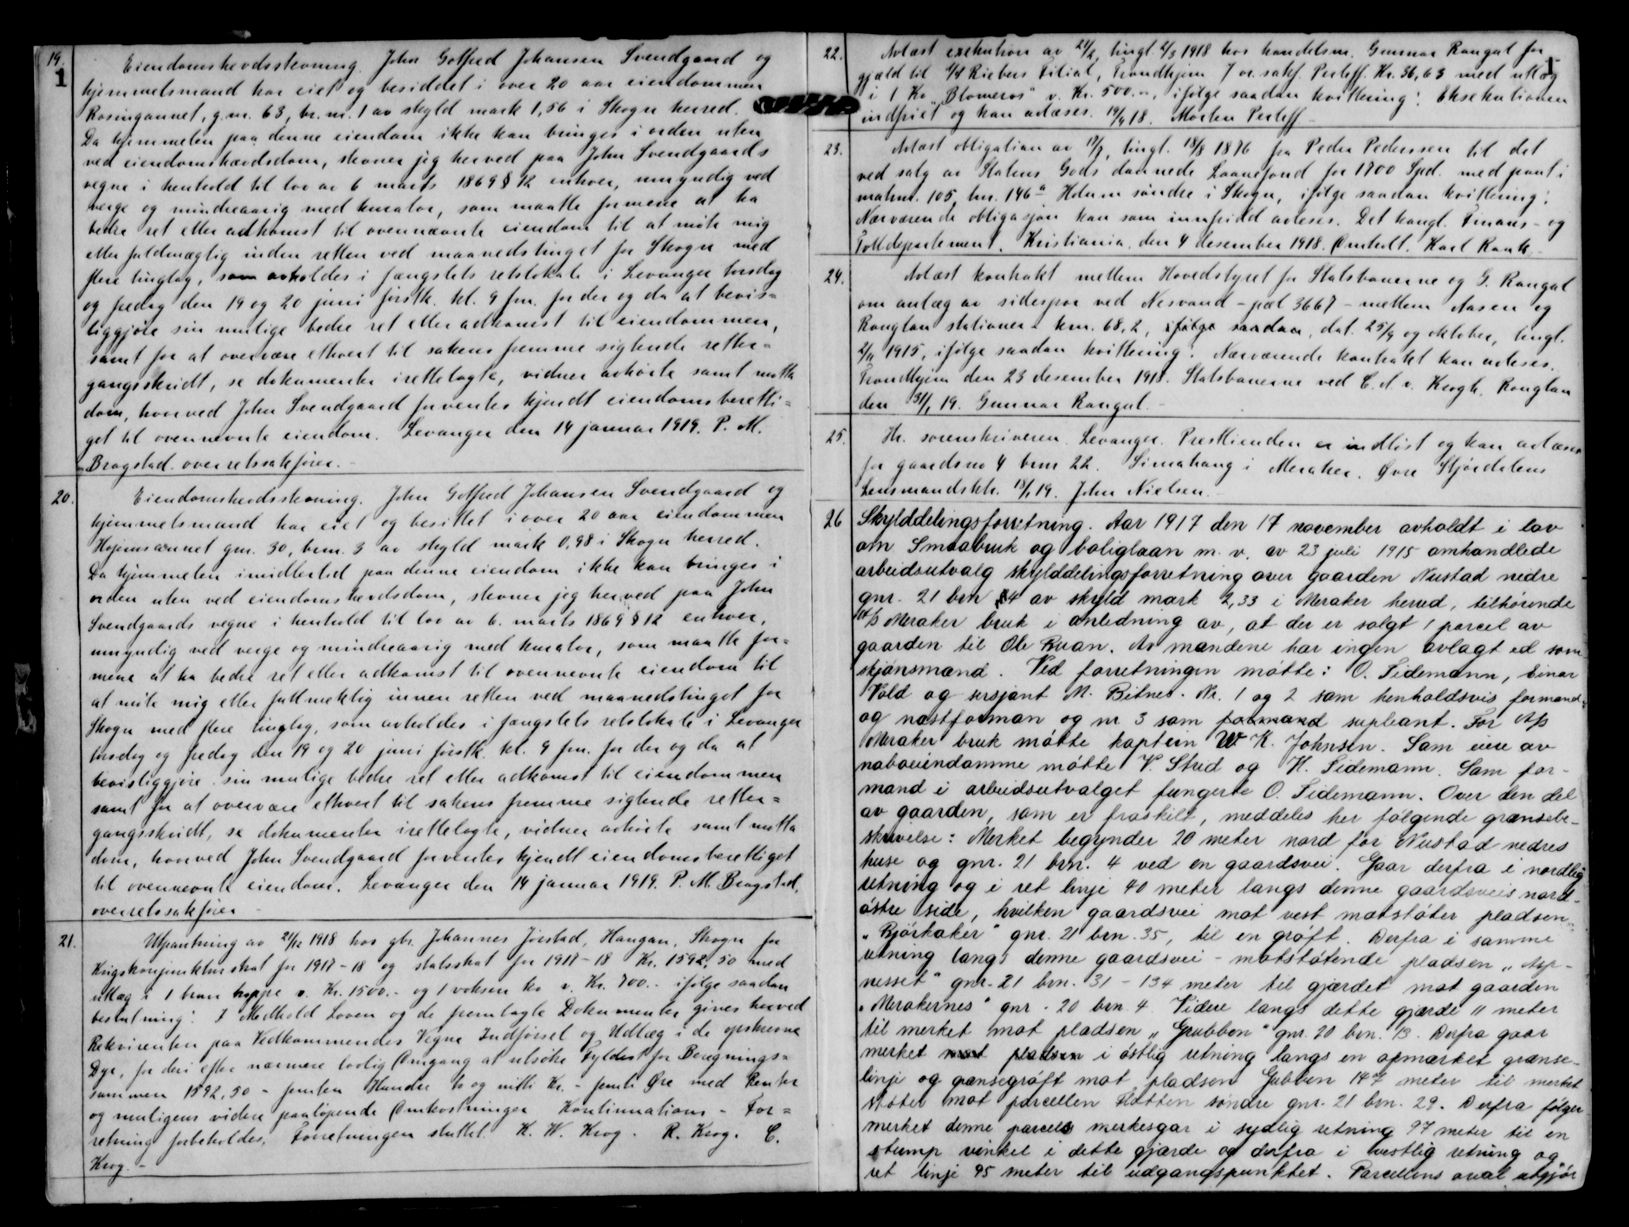 19.
1
Eiendomshevdsstevning. John Gotfred Johansen Svendgaard og
hjemmelsmand har eiet og besiddet i over 20 aar eiendommen
Rosingaunet, g.nr. 63, br.nr. 1 av skyld mark 1,56 i Skogn herred.
Da hjemmelen paa denne eiendom ikke kan bringes i orden uten
ved eiendomshævdsdom, stevner jeg herved paa John Svendgaards
vegne i henhold til lov av 6 marts 1869 § 12 enhver, umyndig ved
verge og mindreaarig med kurator, som maatte formene at ha
bedre ret eller adkomst til ovennævnte eiendom til at møte mig
eller fuldmægtig inden retten ved maanedstinget for Skogn med
flere tinglag, som avholdes i fængslets retslokale i Levanger torsdag
og fredag den 19 og 20 juni førstk. kl. 9 fm. for der og da at bevis-
liggjøre sin mulige bedre ret eller adkomst til eiendommen,
samt for at overvære ethvert til sakens fremme sigtende retter-
gangsskridt, se dokumenter irettelagte, vidner avhørte samt motta
dom, hvorved John Svendgaard forventes kjendt eiendomsberetti-
get til ovennevnte eiendom. Levanger den 14 januar 1919. P. M.
Bragstad. overretssakfører.
20.
Eiendomshevdsstevning. John Gotfred Johansen Svendgaard og
hjemmelsmand har eiet og besittet i over 20 aar eiendommen
gnr. 30, brnr. 3 av skyld mark 0,98 i Skogn herred.
Da hjemmelen imidlertid paa denne eiendom ikke kan bringes i
orden uten ved eiendomshevdsdom, stevner jeg herved paa John
Svendgaards vegne i henhold til lov av 6. marts 1869 § 12 enhver,
umyndig ved verge og mindreaarig med kurator, som maatte for-
mene at ha bedre ret eller adkomst til ovennevnte eiendom til
at møte mig eller fuldmektig innen retten ved maanedstinget for
Skogn med flere tinglag, som avholdes i fængslets retslokale i Levanger
torsdag og fredag den 19 og 20 juni førstk. kl. 9 fm. for der og da at
bevisliggjøre sin mulige bedre ret eller adkomst til eiendommen
samt for at overvære ethvert til sakens fremme sigtende retter-
gangsskridt, se dokumenter irettelagte, vidner avhørte samt motta
dom, hvorved John Svendgaard forventes kjendt eiendomsberettiget
til ovennevnte eiendom. Levanger den 14 januar 1919. P. M. Bragstad.
overretssakfører
21.
Utpantning av 21/12 1918 hos gbr. Johannes Jørstad, Haugan, Skogn for
Krigskonjunkturskat for 1917-18 og statsskat for 1917-18 Kr. 1592,50 med
utlæg i 1 brun hoppe v. Kr. 1500.- og 1 voksen ko v. Kr. 700.- ifølge saadan
beslutning: I Medhold Loven og de fremlagte Dokumenter gives herved
Rekvirenten paa Vedkommendes Vegne Indførsel og Udlæg i de opskrevne
Dyr, for deri efter nærmere lovlig Omgang at utsøke Fyldest for Beregnings-
summen 1592,50 - femten Hundre to og nitti Kr. - femti Øre med Renter
og muligens videre paaløpende Omkostninger Kontinuations - For-
retning forbeholdes. Forretningen sluttet. K. W. Krog. R. Krog. C.
Krog. -
22.
1
Avlæst exekution av 21/2, tingl. 2/3 1918 hos handelsm. Gunnar Rangul for
gjæld til A/S Riebers Filial, Trondhjem / or.sakf. Perleff. Kr. 36,63 med utlæg
i 1 Ko "Blomeros" v. Kr. 500.-, ifølge saadan kvittering: Eksekutionen
indfriet og kan avlæses. 19/4 18. Morten Perleff
23.
Avlæst obligation av 17/7, tingl. 18/8 1876 fra Peder Pederssen til det
ved salg av Statens Gods dannede Laanefond for 1700 Spd. med pant i
matnr. 105, lnr. 146a Holum søndre i Skogn, ifølge saadan kvittering:
Nærværende obligasjon kan som innfridd avleses. Det kongl. Finans- og
Tolldepartement. Kristiania, den 4 desember 1918. Omholt. Karl Rank.
24.
Avlæst kontrakt mellem Hovedstyret for Statsbanerne og G. Rangul
om anlæg av sidespor ved Nesvand - pæl 3667 - mellem Aasen og
Ronglan stationer km. 68,2, ifølge saadan, dat. 25/9 og oktober, tingl.
2/11 1915, ifølge saadan kvittering: Nærværende kontrakt kan avleses.
Trondhjem den 23 desember 1918. Statsbanerne ved C. A v. Krogh. Ronglan
den 31/1 19. Gunnar Rangul. -
25.
Hr. sorenskriveren. Levanger. Presttienden er indløst og kan avlæses
for gaardsno 4 brnr 22. Simahaug i Meraker. Øvre Stjørdalens
Lensmandsktr. 13/1 19. John Nielsen.
26
Skylddelingsforretning. Aar 1917 den 17 november avholdt i lov
om Smaabruk og boliglaan m. v. av 23 juli 1915 omhandlede
arbeidsutvalg skylddelingsforretning over gaarden Nustad nedre
gnr. 21 brn 4 av skyld mark 2,33 i Meraker herred, tilhørende
A/S Meraker bruk i anledning av, at der er solgt 1 parcel av
gaarden til Ole Ruan. Av mændene har ingen avlagt ed som
skjønsmænd. Ved forretningen møtte: O. Tidemann, Einar
Vold og sersjant M. Bitnes. Nr. 1 og 2 som henholdsvis formand
og næstforman og nr 3 som formand supleant. For A/S
Meraker bruk møtte kaptein W K. Johnsen. Som eiere av
naboeiendomme møtte V. Stred og K. Tidemann. Som for-
mand i arbeidsutvalget fungerte O. Tidemann. Over den del
av gaarden, som er fraskilt, meddeles her følgende grænsebe-
skrivelse: Merket begynder 20 meter nord for Nustad nedres
huse og gnr. 21 brn. 4 ved en gaardsvei. Gaar derfra i nordlig
retning og i ret linje 40 meter langs denne gaardsveis nord-
østre side, hvilken gaardsvei mot vest motstøter pladsen
"Bjørkaker" gnr. 21 brn. 35, til en grøft. Derfra i samme
retning langs denne gaardsvei - motstøtende pladsen "Asp-
nesset" gnr. 21 brn. 31 - 134 meter til gjærdet mot gaarden
"Merakernes" gnr. 20 brn 4. Videre langs dette gjærde 11 meter
til merket mot pladsen "Grubben" gnr. 20 brn. 13. Derfra gaar
merket mot pladsen i østlig retning langs en opmerket grænse-
linje og grænsegrøft mot pladsen Gubben 147 meter til merket
støter mot parcellen Flotten søndre gnr. 21 brn. 29. Derfra følger
merket denne parcels merkesgar i sydlig retning 97 meter til en
stump vinkel i dette gjærde og derfra i vestlig retning og
ret linje 95 meter til udgangspunktet. Parcellens areal utgjør